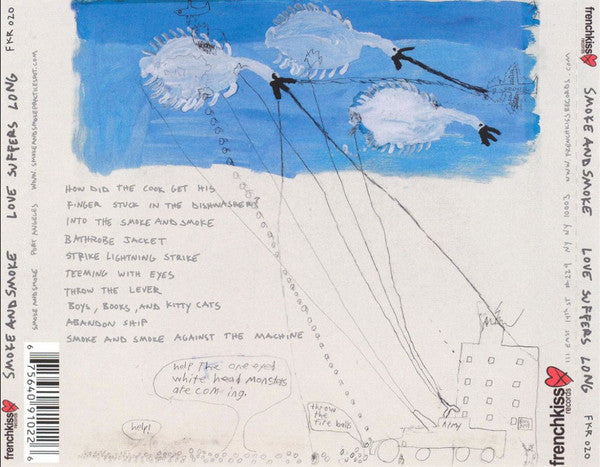 FKR 020
LOVE SUFFERS LONG
SMOKE AND SMOKE
frenchkiss
records
WWW.SMOKEANDSMOKEPRACTICESART.COM
PORT ANGELES
SMOKE AND SMOKE
HOW DID THE COOK GET HIS
FINGER STUCK IN THE DISHWASHER?
INTO THE SMOKE AND SMOKE
BATHROBE JACKET
STRIKE LIGHTNING STRIKE
TEEMING WITH EYES
THROW THE LEVER
BOYS, BOOKS, AND KITTY CATS
ABANDON SHIP
SMOKE AND SMOKE AGAINST THE MACHINE
help The one eyed
white head monsters
are coming.
help!
throw
the
fire balls
Army
6 75640 91022 6
frenchkiss
records
SMOKE AND SMOKE
LOVE SUFFERS LONG
FKR 020
frenchkiss
records
WWW.FRENCHKISSRECORDS.COM
111 EAST 14TH ST #229 NY NY 10003